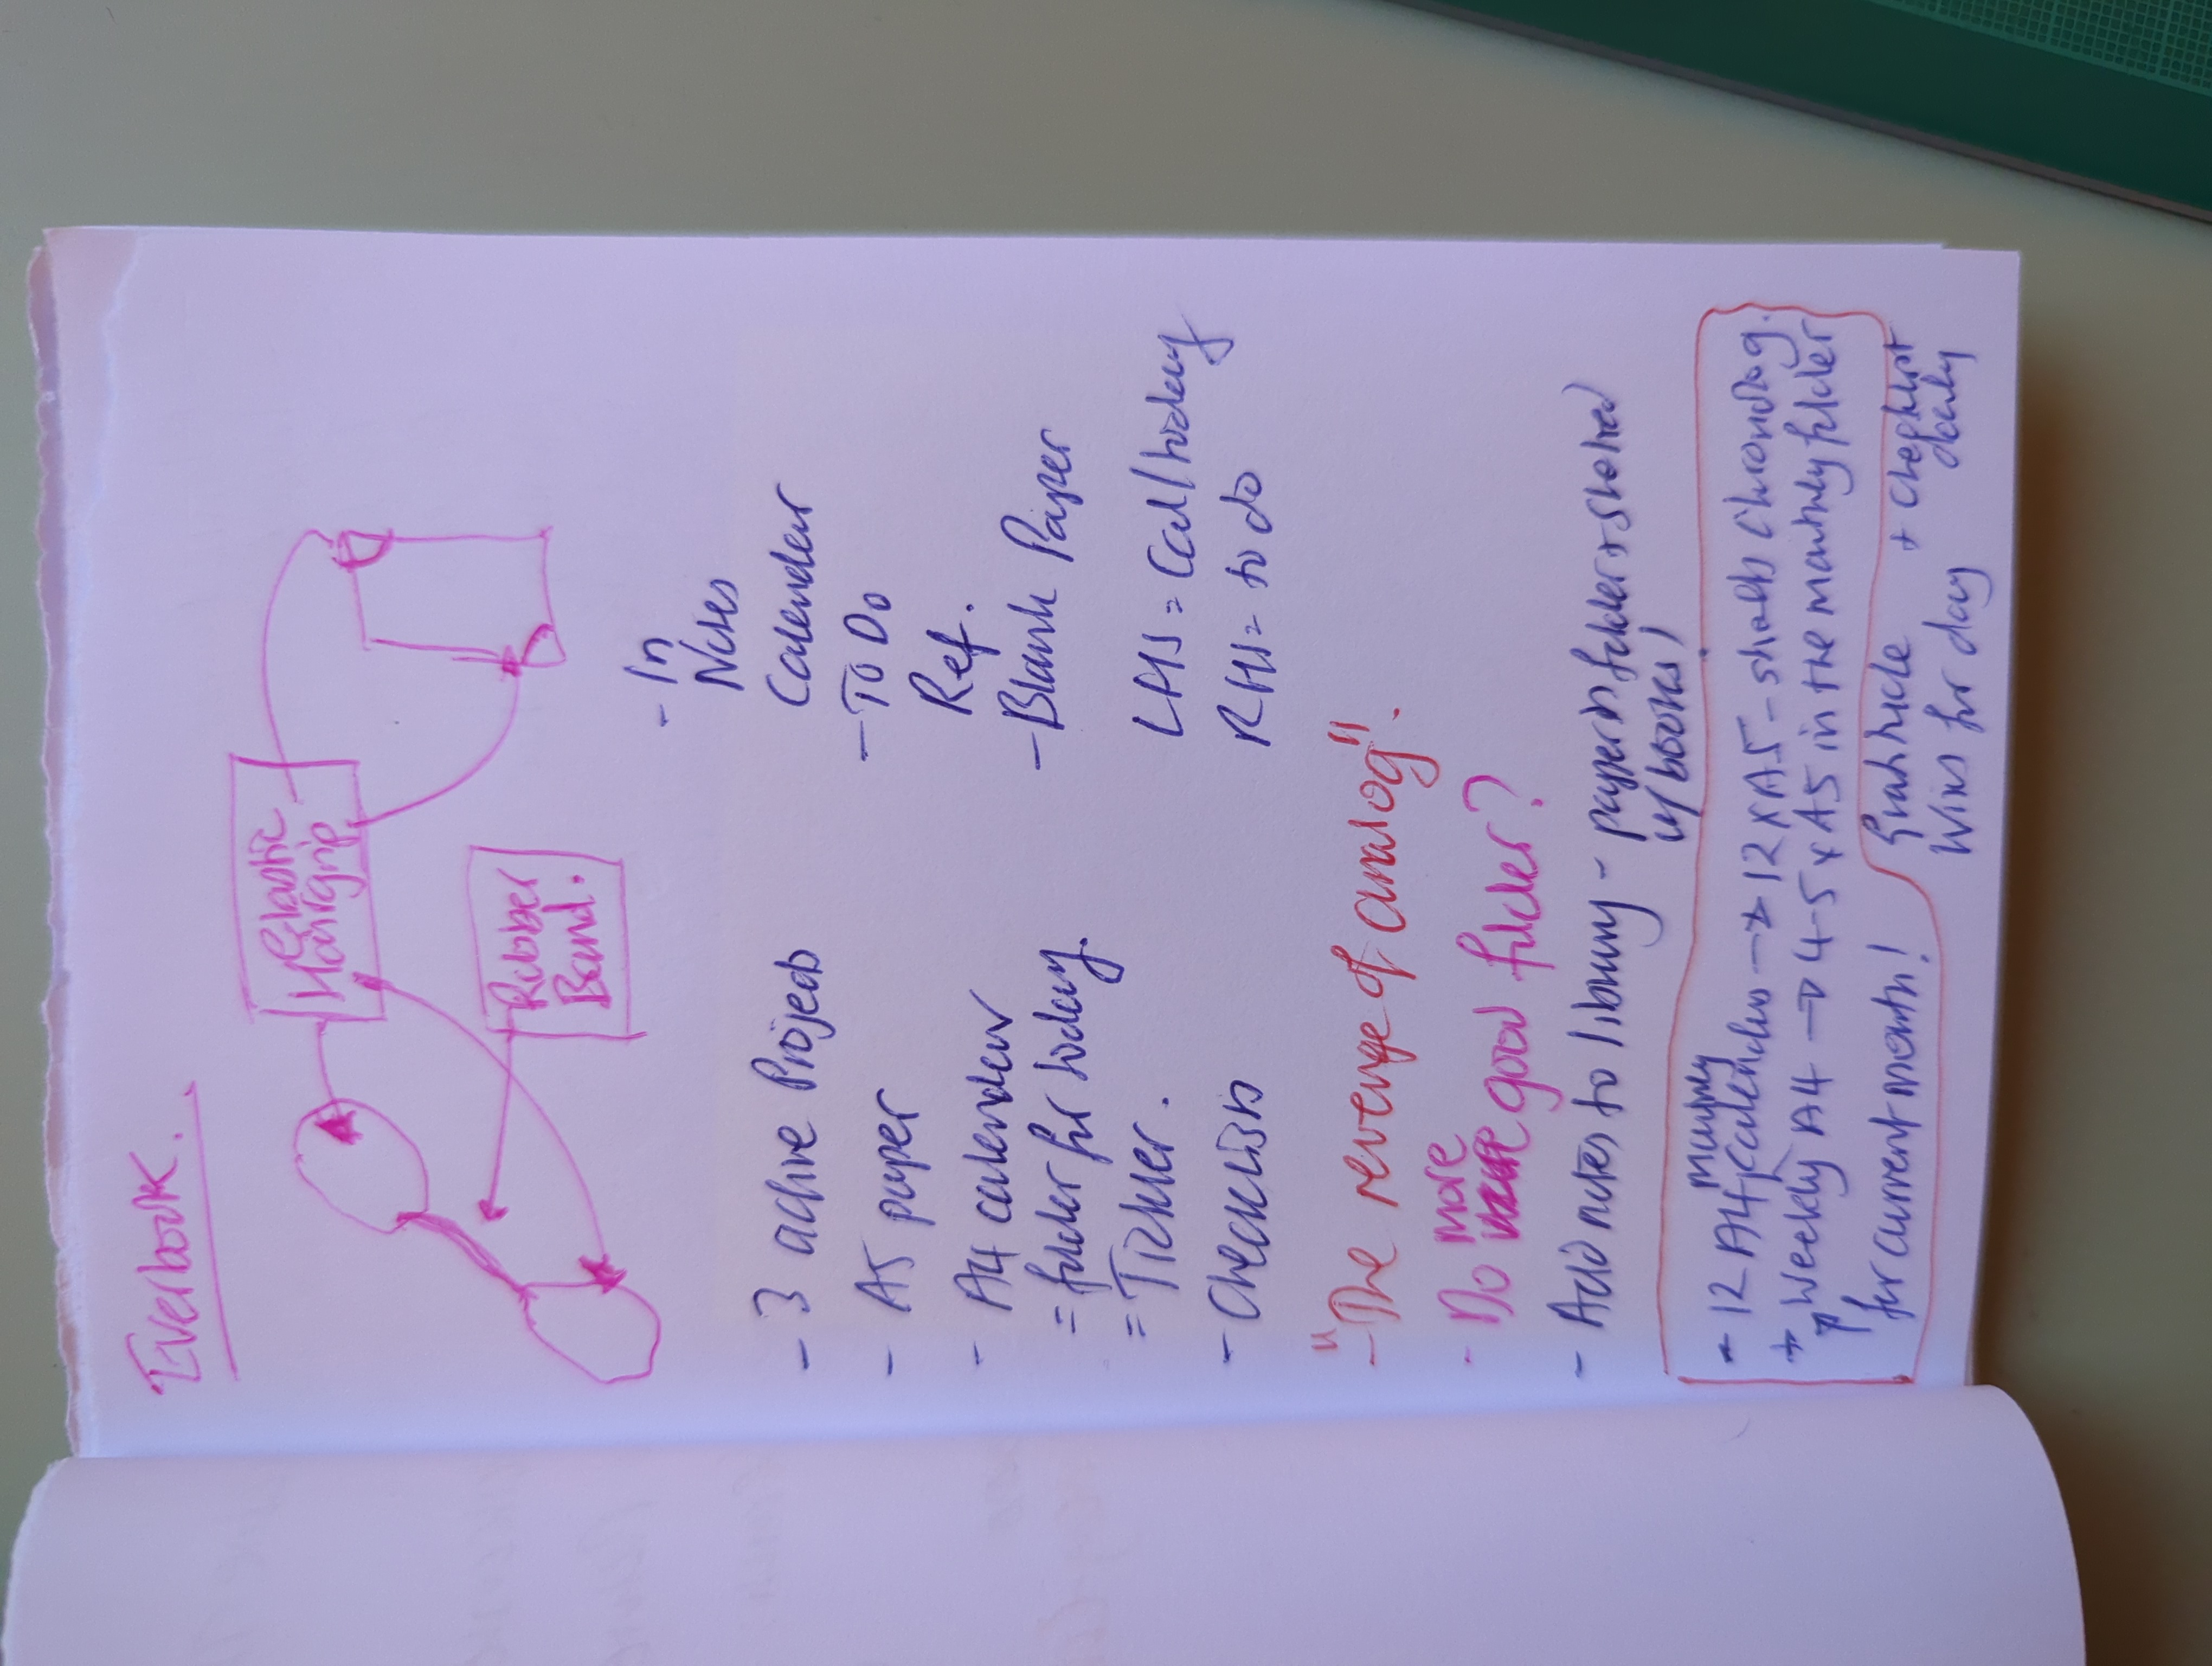 Everbook.
Elastic
Hairgrip
Rubber
Band.
- 3 active Projects
- A5 paper
- A4 calendar
= folder for today.
= Tickler.
- Checklists
- In
Notes
Calendar
- To Do
Ref.
- Blank Paper
LHS = Cal/today
RHS = to do
- "The revenge of analog".
- Do more good folder?
- Add notes to library - papers in folder + stored
w/ books!
- 12 A4 monthly calendars → 12 x A5 - sheets Chronolog.
+ Weekly A4 → 4-5 x A5 in the monthly folder
for current month!
Gratitude
Wins for day
+ Checklist
daily